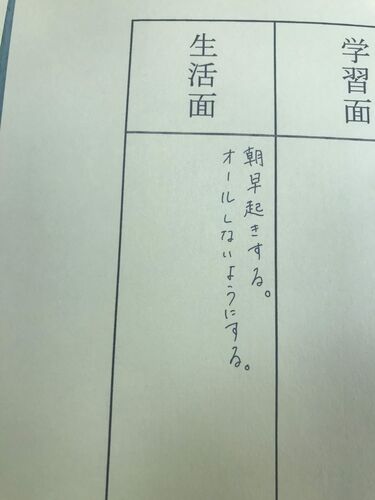 学習面
生活面
朝早起きする。
オールしないようにする。